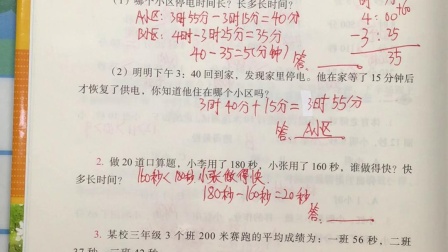 (1)哪个小区停电时间长?长多长时间?
A小区:3时55分-3时15分=40分
B小区:4时-3时25分=35分
40-35=5(分钟)
答、
4:00
+60
-3:25
35
(2)明明下午3:40回到家,发现家里停电。他在家等了15分钟后
才恢复了供电,你知道他住在哪个小区吗?
3时40分+15分=3时55分
答、A小区
2. 做20道口算题,小李用了180秒,小张用了160秒,谁做得快?快
多长时间?
160秒<180秒 小张做得快
180秒-160秒=20秒
答、
3. 某校三年级3个班200米赛跑的平均成绩为:一班56秒,二班
37秒,三班42秒